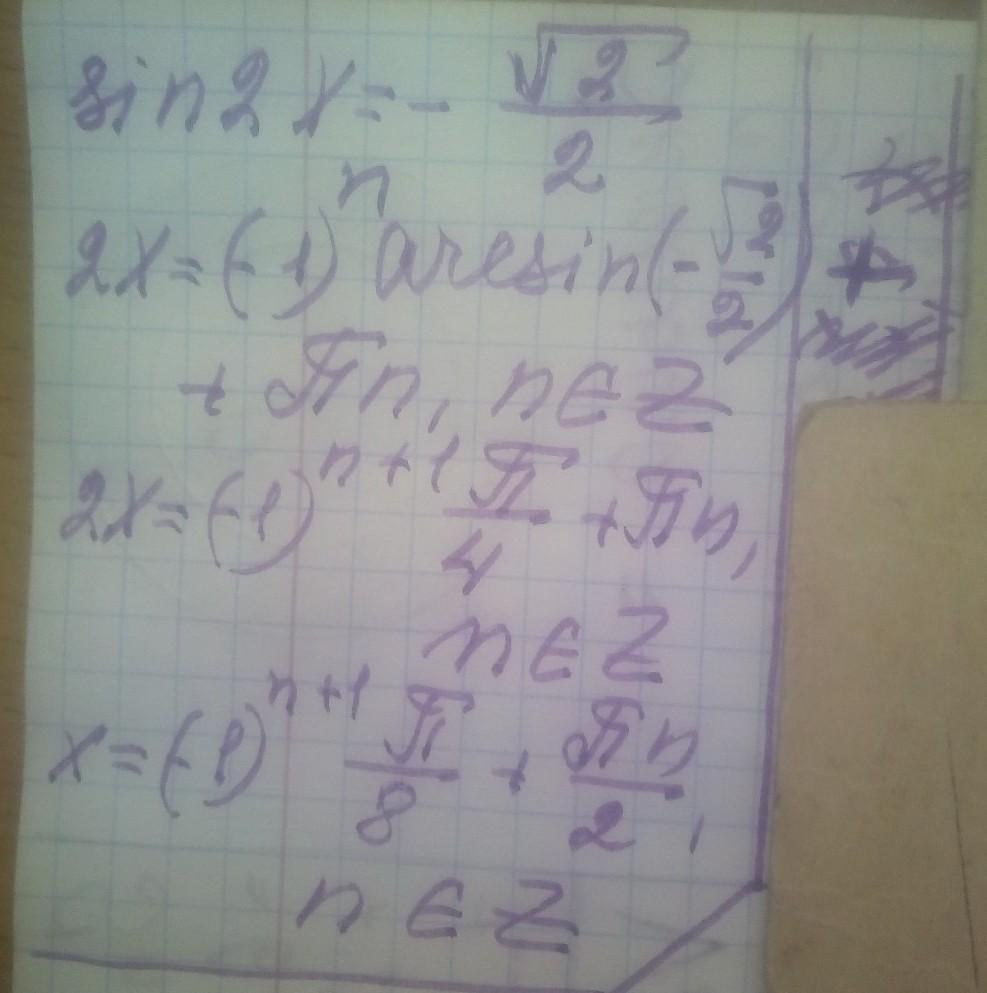 sin2x=-√2/2
2x=(-1)^n arcsin(-√2/2)
+πn, n∈Z
2x=(-1)^(n+1) π/4 +πn,
n∈Z
x=(-1)^(n+1) π/8 + πn/2,
n∈Z